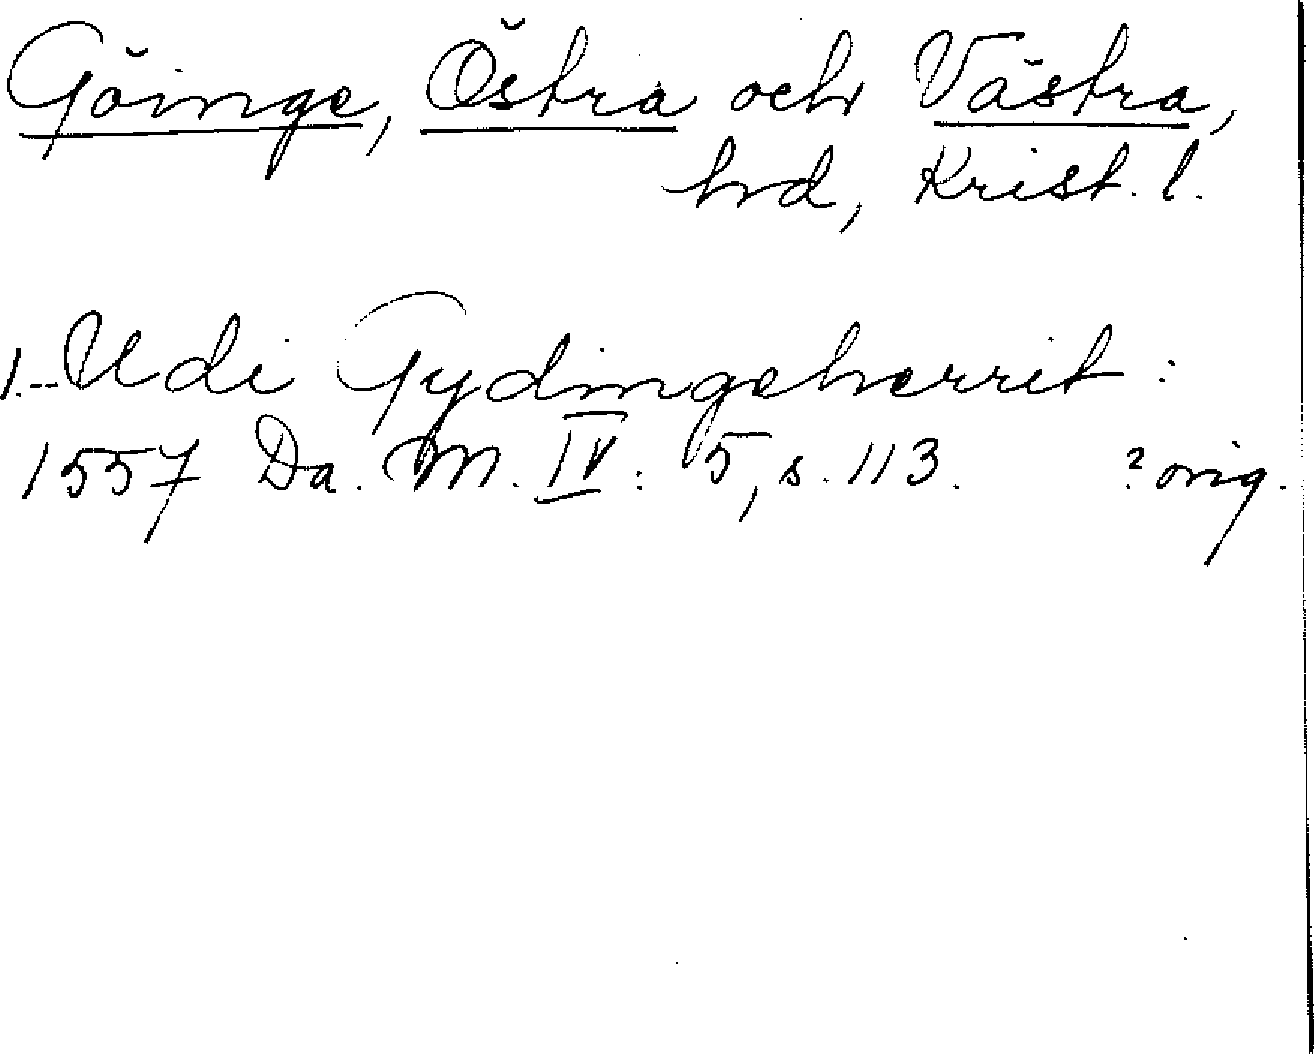 Göinge, Östra och Västra,
hrd, Krist. l.
1. -- Udi Gydingeherrit :
1557 Da. M. IV : 5, s. 113. ? orig.